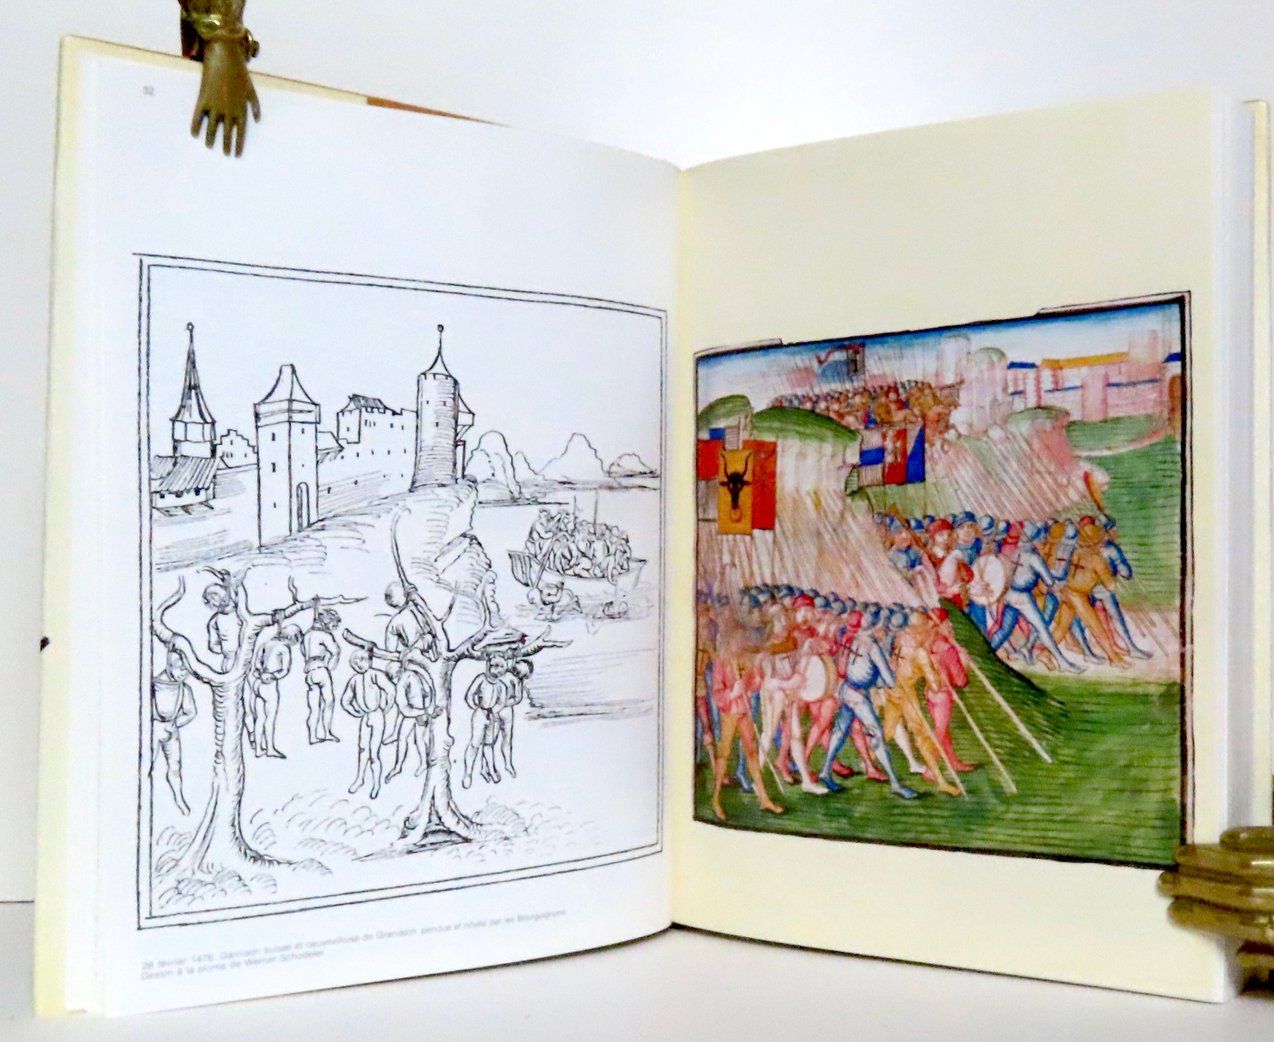 52
28 février 1476. Garnison suisse et neuveviloise de Grandson pendue et noyée par les Bourguignons.
Dessin à la plume de Werner Schodeler